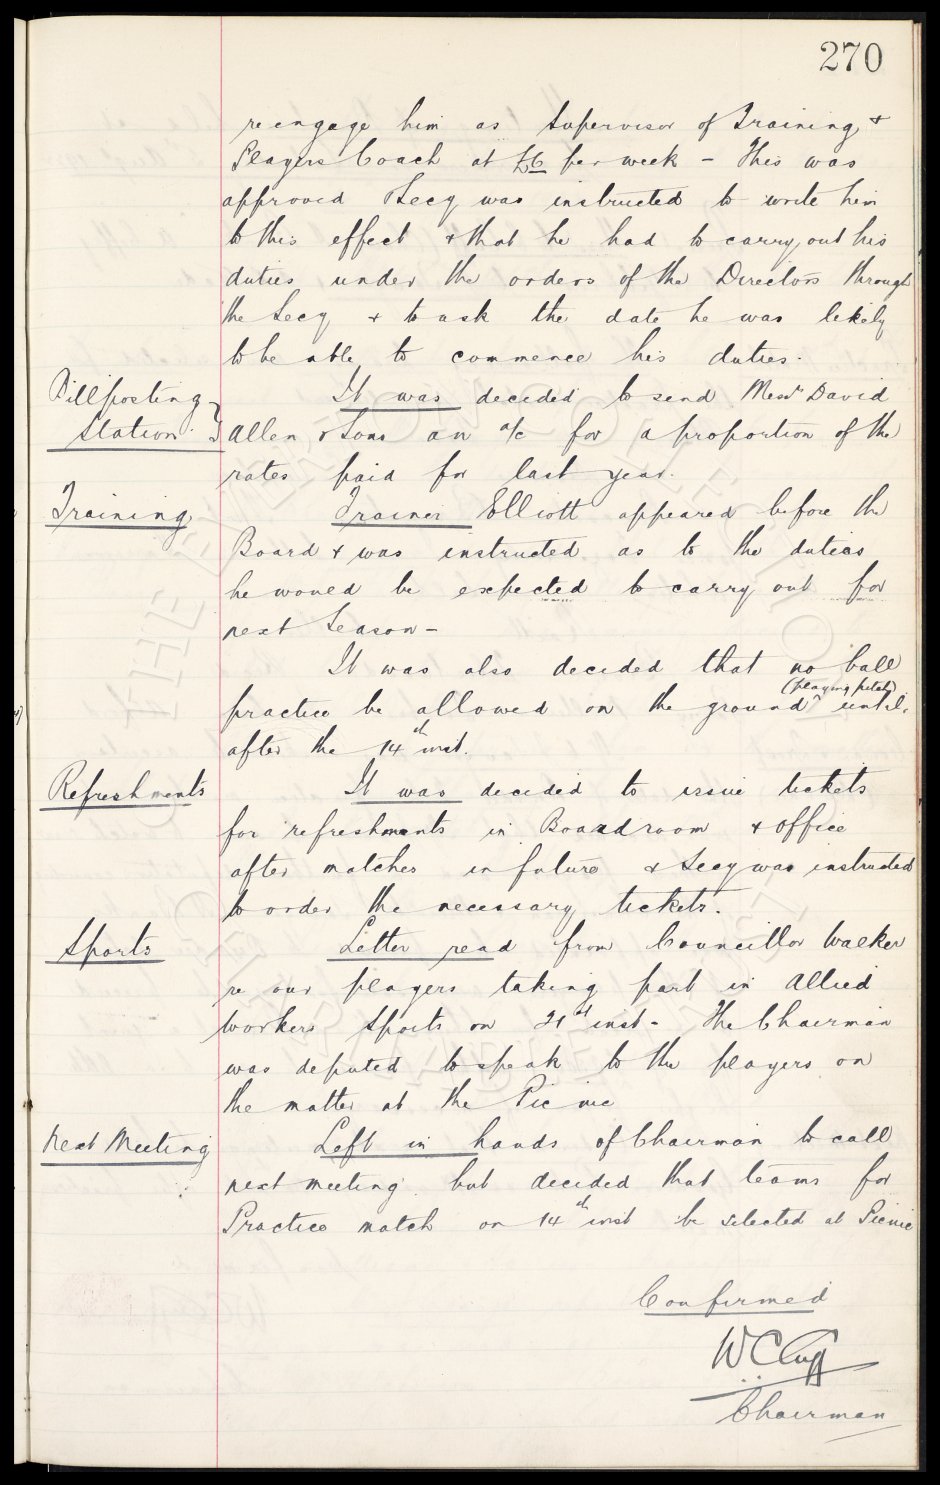 270
re engage him as Supervisor of Training &
Players Coach at £6 per week - This was
approved & Secy was instructed to write him
to this effect & that he had to carry out his
duties under the orders of the Directors through
the Secy & to ask the date he was likely
to be able to commence his duties.
Billposting
Station.
It was decided to send Messrs David
Allen & Sons an a/c for a proportion of the
rates paid for last year.
Training
Trainer Elliott appeared before the
Board & was instructed as to the duties
he would be expected to carry out for
next Season -
It was also decided that no ball
(playing pitch)
practice be allowed on the ground ^ until
after the 14th inst.
Refreshments
It was decided to issue tickets
for refreshments in Boardroom & office
after matches in future & Secy was instructed
to order the necessary tickets.
Sports
Letter read from Councillor Walker
re our players taking part in Allied
Workers Sports on 21st inst - The Chairman
was deputed to speak to the players on
the matter at the Pic nic
Next Meeting
Left in hands of Chairman to call
next meeting but decided that teams for
Practice match on 14th inst be selected at Picnic
Confirmed
W C Cuff
Chairman